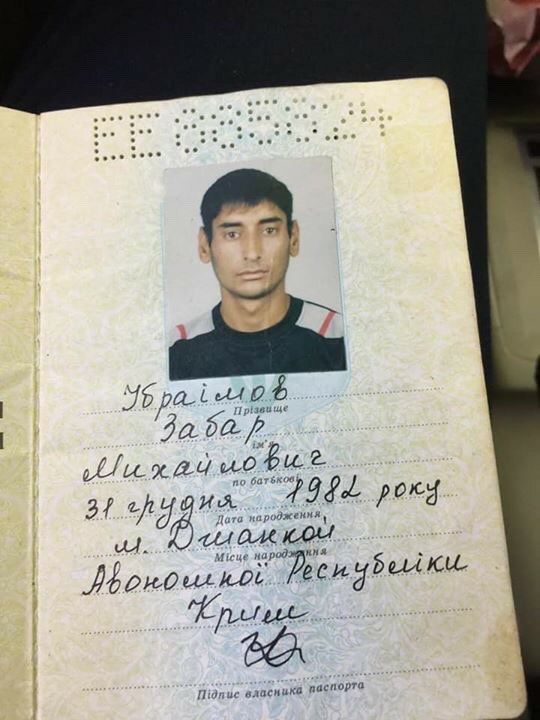 ЕЕ
Убраімов
Прізвище
Забар
ім'я
Михайлович
по батькові
31 грудня 1982 року
Дата народження
м. Джанкой
Місце народження
Авономної Республіки
Крим
Підпис власника паспорта